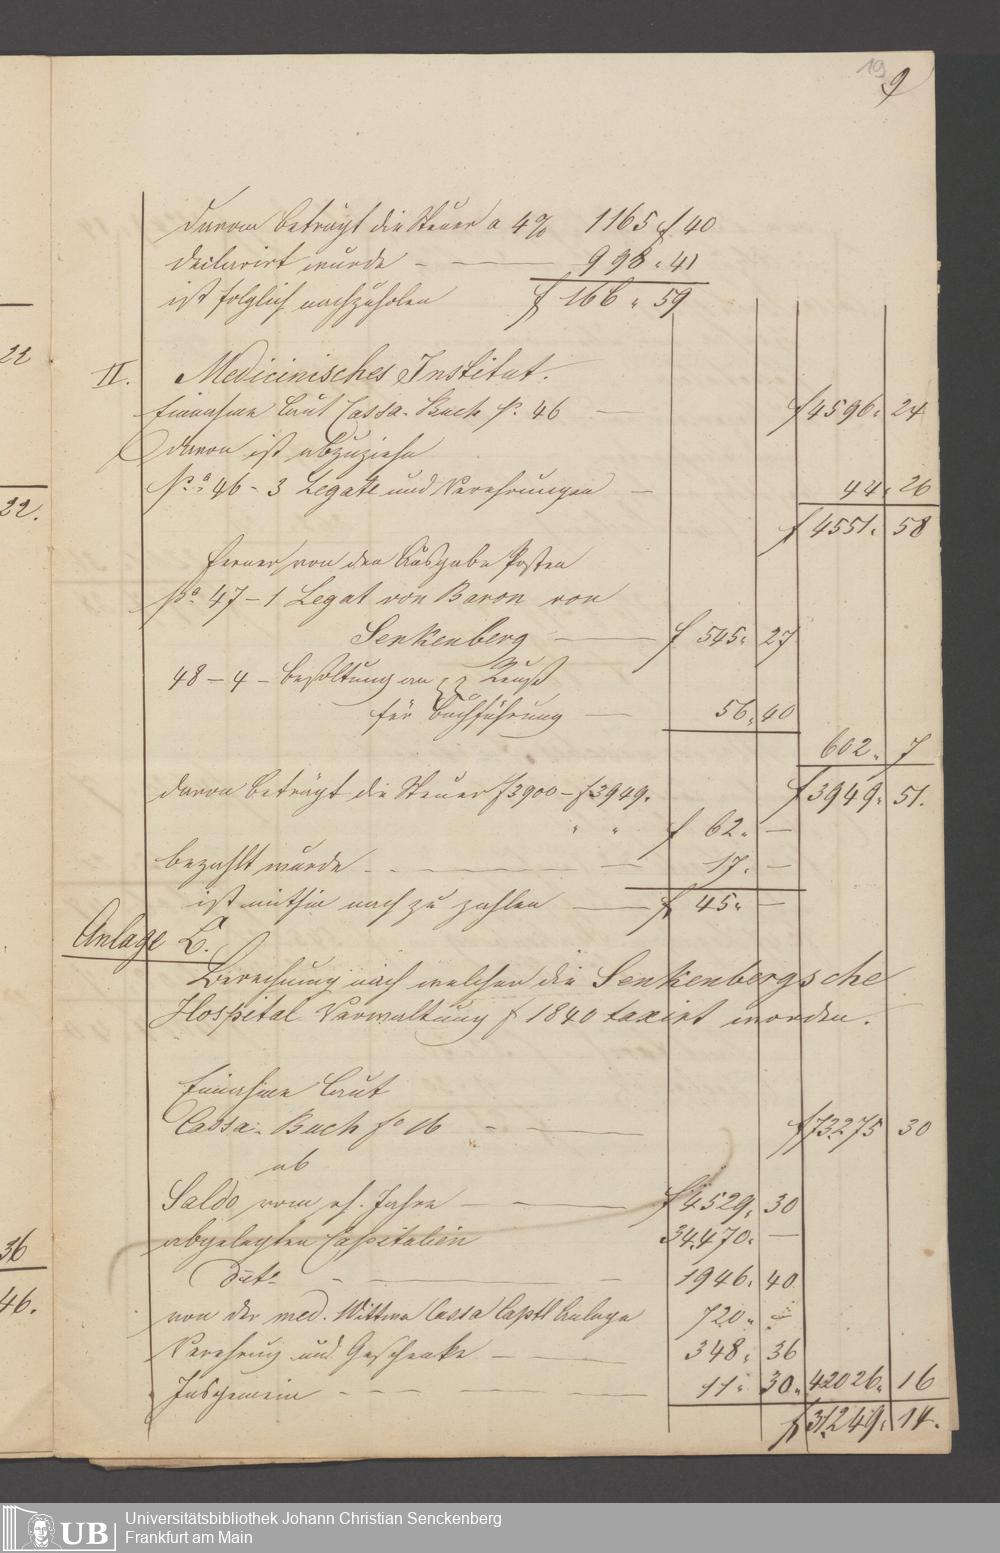 19
9
davon beträgt die Steuer a 4% 1165 f 40
declarirt wurde - — 998 " 41
ist folglich nachzuholen f 166 " 59
II. Medicinisches Institut.
Einnahme laut Cassa-Buch p. 46 — f 4596 " 24
davon ist abzuziehn
p.a 46 - 3 Legate und Verehrungen — 44 " 26
f 4551 " 58
ferner von den Ausgabe Posten
po. 47 - 1 Legat von Baron von
Senkenberg — f 545 " 27
48 - 4 - Besoltung an Reuß
für Buchführung — 56 " 40
602 " 7
davon beträgt die Steuer f 3900 - f 3949. f 3949 " 51.
" " f 62 " —
bezahlt wurde — 17 " —
ist mithin nach zu zahlen — f 45 " —
Anlage C.
Berechnung nach welcher die Senkenbergsche
Hospital Verwaltung f 1840 taxirt worden.
Einnahme laut
Cassa-Buch fo 16 - — f 73275 30
ab
Saldo vom vh. Jahre — f 4529 " 30
abgelegten Capitalien 34,470 " —
Dito - — 1946 " 40
von der med. Wittwe Cassa Captl Anlage 720 " —
Verehrung und Geschenke — 348 " 36
Insgemein - — 11 " 30 " 42026 " 16
f 31,249 " 14.
22
22.
36
46.
UB
Universitätsbibliothek Johann Christian Senckenberg
Frankfurt am Main